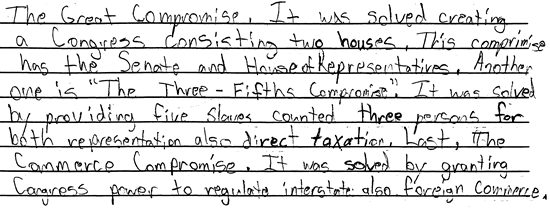 The Great Compromise. It was solved creating
a Congress consisting two houses. This comprimise
has the Senate and House of Representatives. Another
one is "The Three-Fifths Compromise". It was solved
by providing five slaves counted three persons for
both representation also direct taxation. Last, The
Commerce Compromise. It was solved by granting
Congress power to regulate interstate also foreign commerce.